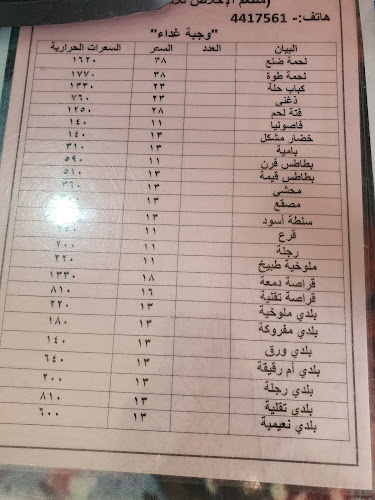 (مطعم الإخلاص
هاتف:- 4417561
"وجبة غداء"
البيان العدد السعر السعرات الحرارية
لحمة ضلع ٣٨ ١٦٢٠
لحمة طوة ٣٨ ١٧٧٠
كباب حلة ٢٣ ١٣٣٠
دغني ٢٣ ٧٦٠
فتة لحم ٢٨ ١٢٥٠
فاصوليا ١١ ١٤٠
خضار مشكل ١٣ ١٤٠
بامية ١٣ ٣١٠
بطاطس فرن ١١ ٥٩٠
بطاطس قيمة ١٣ ٥١٠
محشي ١٣ ٣٦٠
مصقع ١٣
سلطة أسود ١٣
قرع ١١
رجلة ١١ ٢٠٠
ملوخية طبيخ ١١ ٢٢٠
قراصة دمعة ١٨ ١٣٣٠
قراصة تقلية ١٦ ٨١٠
بلدي ملوخية ١٣ ٢٢٠
بلدي مفروكة ١٣ ١٨٠
بلدي ورق ١٣ ١٤٠
بلدي أم رقيقة ١٣ ٦٤٠
بلدي رجلة ١٣ ٢٠٠
بلدي تقلية ١٣ ٨١٠
بلدي نعيمية ١٣ ٦٠٠